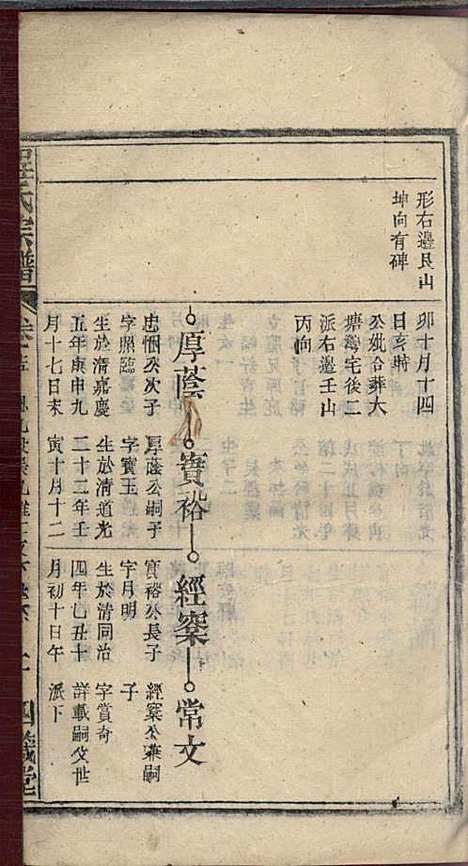 形右邊艮山
坤向有碑
卯十月十四
日亥時
公妣合葬大
塘灣宅後二
派右邊壬山
丙向
厚蔭
寶裕
經案
常文
忠悃公次子
字照臨
生於清嘉慶
五年庚申九
月十七日未
厚蔭公嗣子
字寶玉
生於清道光
二十二年壬
寅十月十二
寶裕公長子
字月明
生於清同治
四年乙丑十
月初十日午
經案公兼嗣
子
字賞奇
詳載嗣父世
派下
氏宗譜